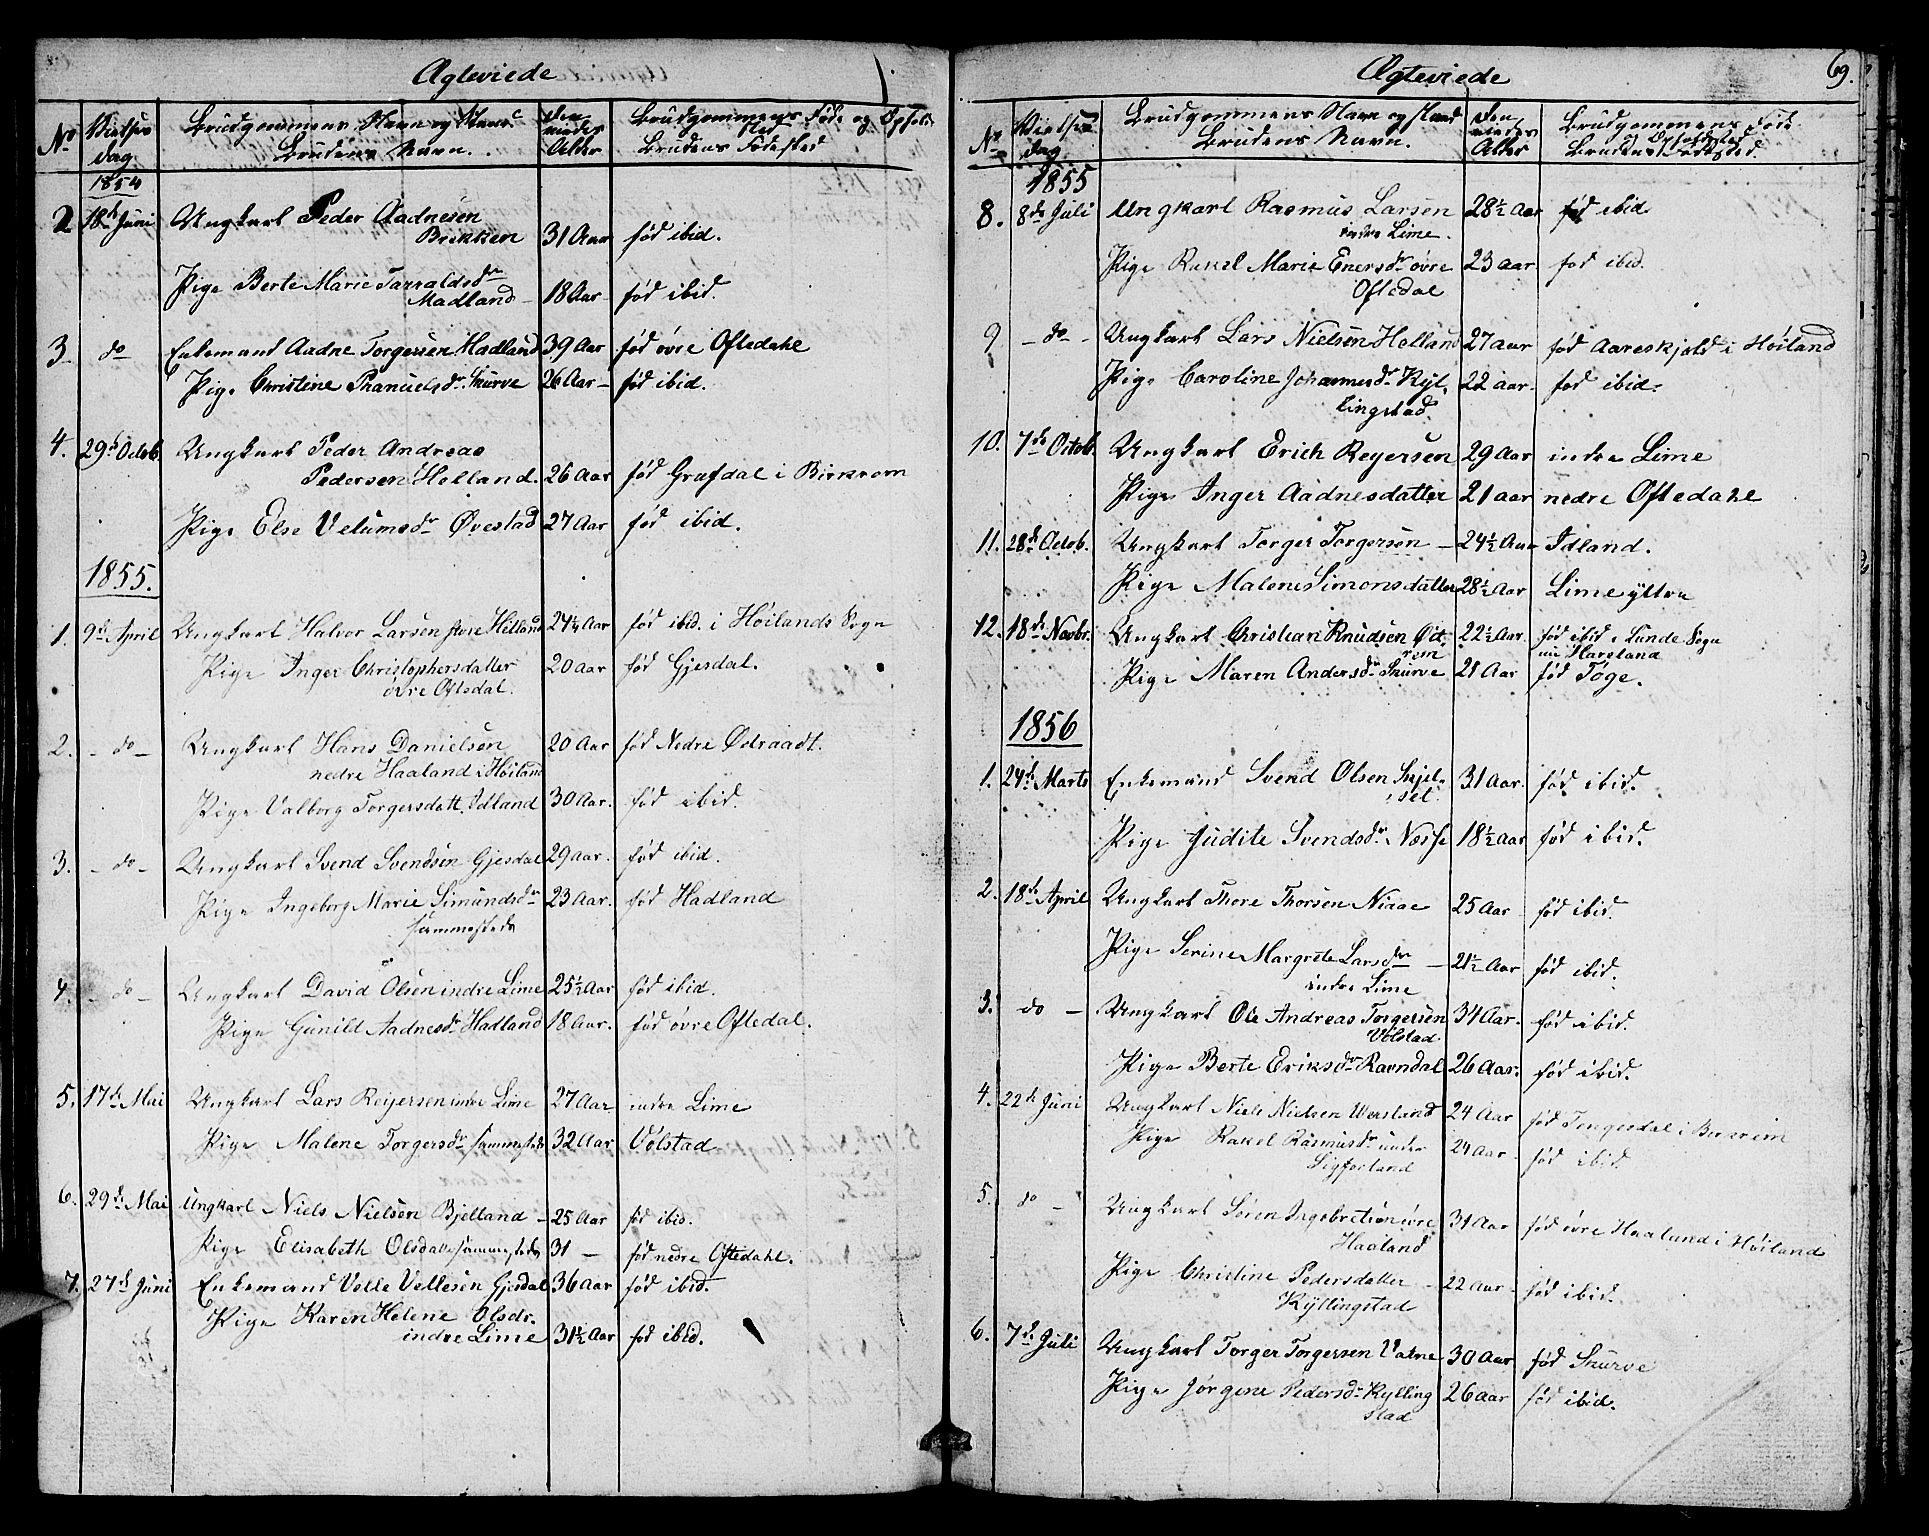 Ægteviede
No Vielses dag Brudgommens Navn og Stand Brudens Navn. Den viedes Alder Brudgommens Føde og Opholdssted Brudens Fødested
1854
2 18de Juni Ungkarl Peder Aadnesen
Brekken 31 Aar født ibid.
Pige Berte Marie Tarraldsdr
Madland 18 Aar født ibid.
3 do Enkemand Aadne Torgersen Hadland 39 Aar født øvre Oftedahl
Pige Christine Phanuelsdr Skurve 26 Aar født ibid.
4. 29de Octob. Ungkarl Peder Andreas
Pedersen Holland. 26 Aar født Grafdal i Birkrem
Pige Else Velumsdr Øvestad 27 Aar født ibid.
1855.
1. 9de April Ungkarl Halvor Larsen store Hetland 24¼ Aar født ibid. i Høilands Sogn
Pige Inger Christophersdatter 20 aar født Gjesdal.
øvre Oftedal.
2. do Ungkarl Hans Danielsen 20 Aar født Nedre Ødraadt.
nedre Haaland i Høiland
Pige Valborg Torgersdatt. Idland 30 Aar. født ibid.
3. do Ungkarl Svend Svendsen Gjesdal 29 aar. født ibid.
Pige Ingeborg Marie Simundsdr 23 Aar. født Hadland
sammesteds
4. do Ungkarl David Olsen indre Lime 25½ Aar født ibid.
Pige Gunild Aadnesdr Hadland 18 Aar. født øvre Oftedal.
5. 17de Mai Ungkarl Lars Reyersen indre Lime 27 Aar indre Lime
Pige Malene Torgersdr sammesteds 32 Aar Volstad
6. 29de Mai Ungkarl Niels Nielsen Bjelland 25 Aar født ibid.
Pige Elisabeth Olsdatter sammesteds 31 — født nedre Oftedahl.
7. 27de Juni Enkemand Volle Vellesen Gjesdal 36 Aar født ibid.
Pige Karen Helene Olsdr.
indre Lime 31½ Aar født ibid.
Ægteviede 69.
No Vielses dag Brudgommens Navn og Stand Brudens Navn. Den viedes Alder Brudgommens Føde Opholdssted Brudens Fødested.
1855
8. 8de Juli Ungkarl Rasmus Larsen 28½ Aar født ibid.
indre Lime.
Pige Rakel Marie Enersdr øvre 23 aar født ibid.
Oftedal
9 do Ungkarl Lars Nielsen Helland 27 aar født Aareskjold i Høiland
Pige Caroline Johannesdr Kyl 22 aar. født ibid.
lingstad.
10. 7de Octob. Ungkarl Erich Reyersen 29 Aar indre Lime
Pige Inger Aadnesdatter 21 aar nedre Oftedahl
11. 28de Octob. Ungkarl Torger Torgersen 24½ Aar Idland.
Pige Malene Simonsdatter 28½ Aar Lime yttre
12. 18de Novbr. Ungkarl Christian Knudsen Ød 22½ Aar. født ibid i Lunde Sogn
rem nu Harestand
Pige Maren Andersdr Skurve 21 Aar født Tøge.
1856
1. 24de Marts Enkemand Svend Olsen Skjel 31 Aar. født ibid.
set.
Pige Judite Svendsdr. Næsse 18½ aar født ibid.
2. 18de April Ungkarl Thore Thorsen Niaae 25 Aar født ibid.
Pige Serine Margrete Larsdr 21½ Aar født ibid.
indre Lime
3. do Ungkarl Ole Andreas Torgersen 31 Aar. født ibid.
Volstad.
Pige Berte Eriksdr Ravndal 26 Aar. født ibid.
4. 22de Juni Ungkarl Niels Nielsen Versland 24 Aar født Tengesdal i Birkreim
Pige Rakel Rasmusdr under 24 Aar født ibid.
Sigferland
5. do Ungkarl Søren Ingebretsen øvre 31 Aar født øvre Haaland i Høiland
Haaland
Pige Christine Pedersdatter 22 Aar født ibid.
Kyllingstad
6. 7de Juli Ungkarl Torger Torgersen Valne 30 Aar født Skurve
Pige Jørgene Pedersdr Kylling 26 Aar født ibid.
stad